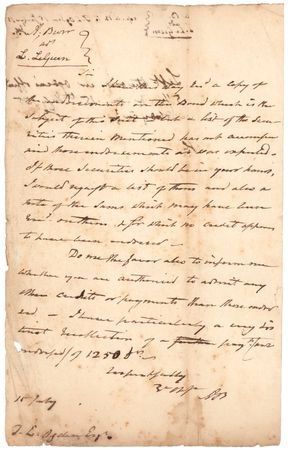 A. Burr
L. LeGuen
Sir
a copy of
the Endorsements on the Bond which is the
subject of this Suit but a list of the Secu-
rities therein mentioned has not accompa-
nied those endorsements as was expected.
If those Securities should be in your hands,
I would request a list of them and also a
note of the Sums which may have been
on them, & for which no credit appears
to have been endorsed —
Do me the favor also to inform me
whether you are authorised to admit any
other credits or payments than those endor-
sed — I have particularly a very dis-
tinct recollection of a payt
endorsed of 1250 Ds
respectfully
AB
15 July
T. L. Ogden Esqr